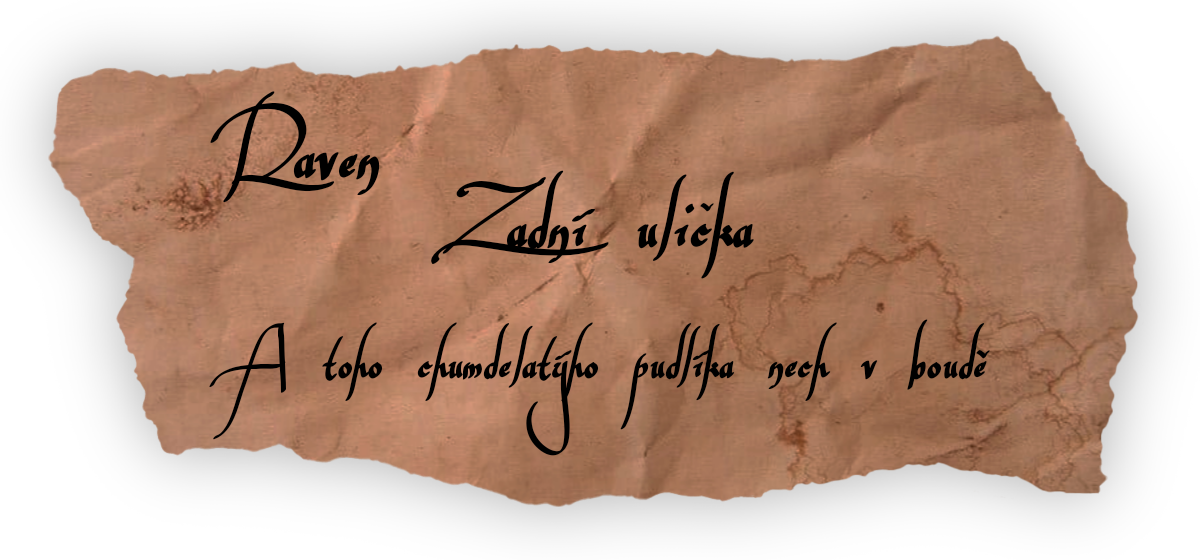 Raven
Zadní ulička
A toho chumdelatýho pudlíka nech v boudě